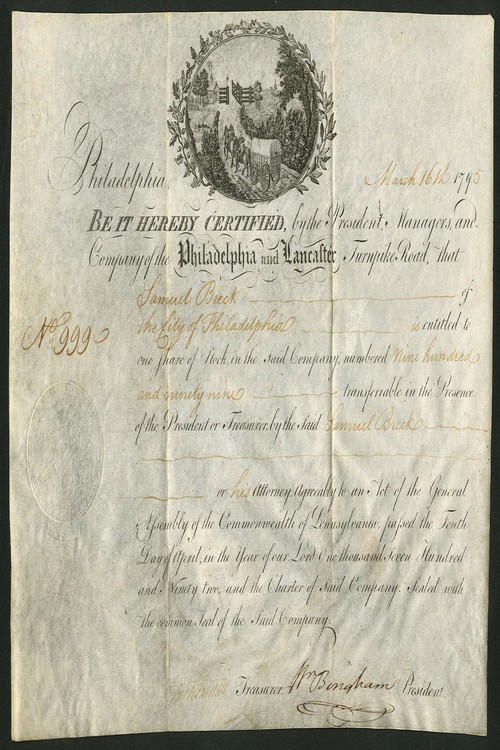 Philadelphia, March 16th 1795
BE IT HEREBY CERTIFIED, by the President Managers, and
Company of the Philadelphia and Lancaster Turnpike Road, that
Samuel Breck of
the City of Philadelphia is entitled to
No. 999
one Share of Stock, in the Said Company, numbered Nine hundred
and ninety nine transferrable in the Presence
of the President or Treasurer, by the Said Samuel Breck
or his Attorney, Agreeably to an Act of the General
Assembly of the Commonwealth of Pennsylvania, passed the Tenth
Day of April, in the Year of our Lord One thousand Seven Hundred
and Ninety two, and the Charter of Said Company. Sealed with
the common Seal of the Said Company.
Treasurer. Wm Bingham President.